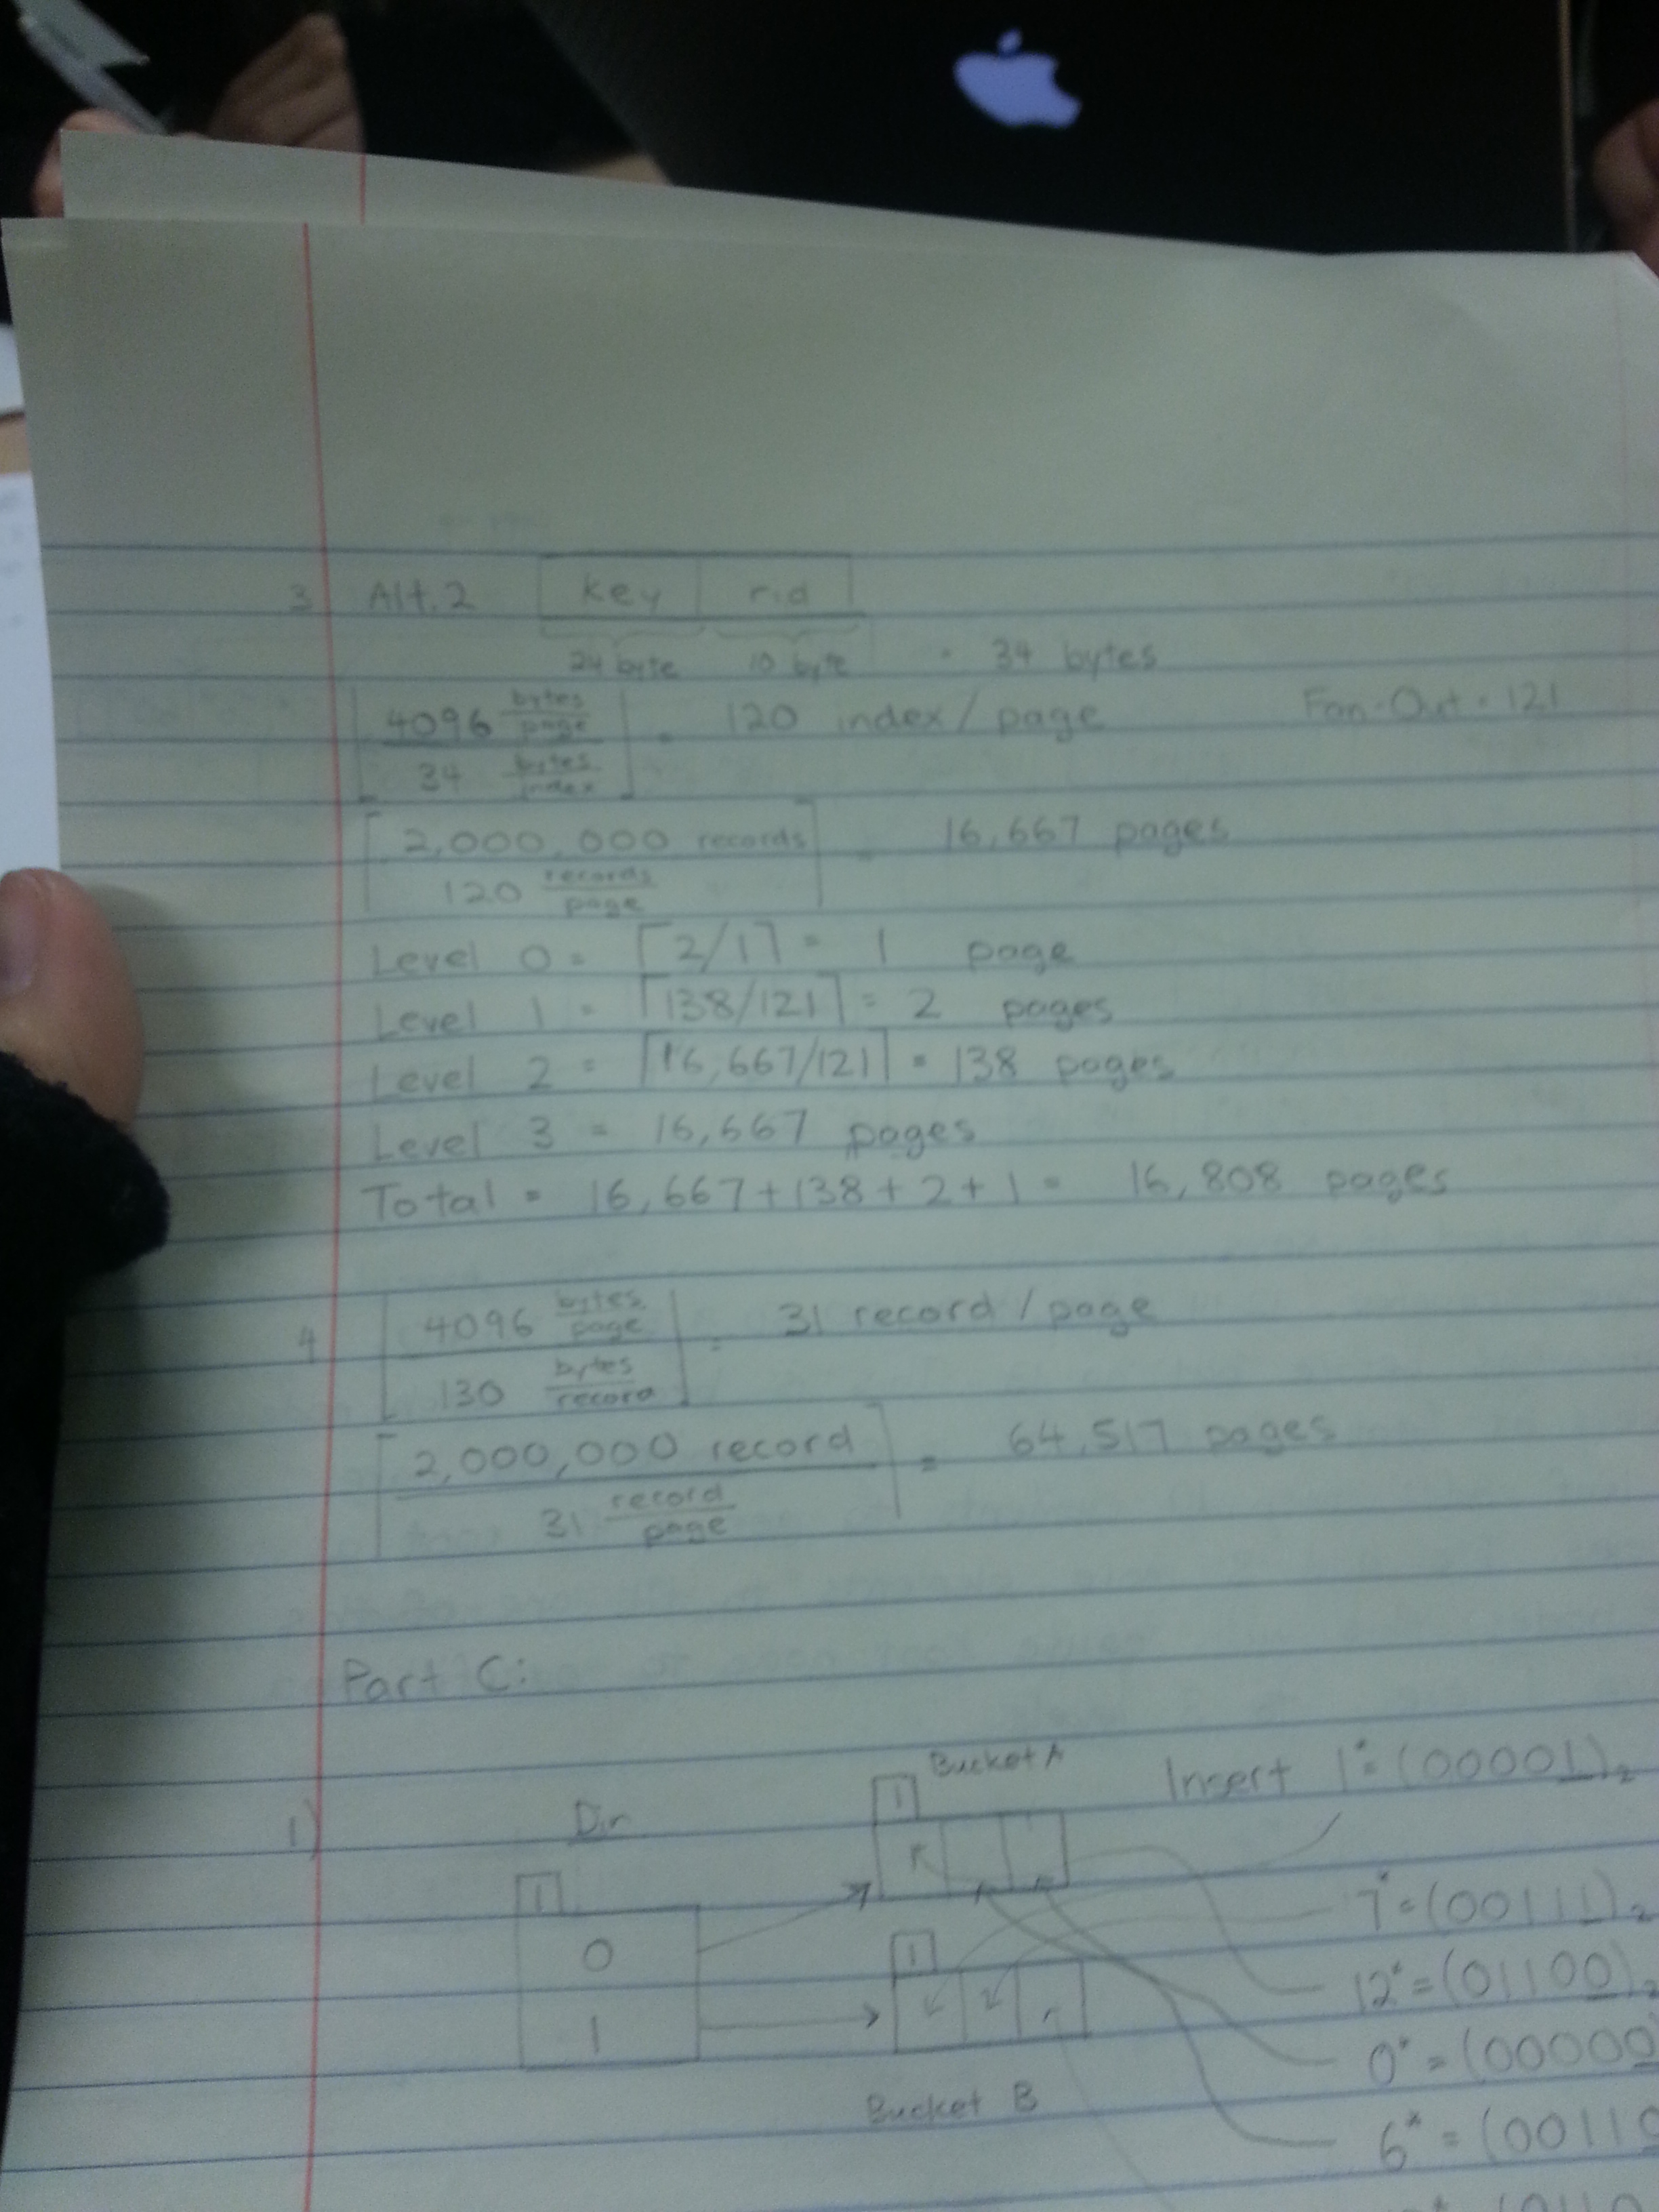 3 Alt. 2 key rid
24 byte 10 byte = 34 bytes
4096 bytes/page / 34 bytes/index = 120 index/page Fan-Out = 121
2,000,000 records / 120 records/page = 16,667 pages
Level 0 = ⌈2/1⌉ = 1 page
Level 1 = ⌈138/121⌉ = 2 pages
Level 2 = ⌈16,667/121⌉ = 138 pages
Level 3 = 16,667 pages
Total = 16,667+138+2+1 = 16,808 pages
4 4096 bytes/page / 130 bytes/record = 31 record/page
2,000,000 record / 31 record/page = 64,517 pages
Part C:
Bucket A Insert 1* = (00001)₂
1) Dir 1
1
7* = (00111)₂
0 1
12* = (01100)₂
1
0* = (00000
Bucket B
6* = (00110